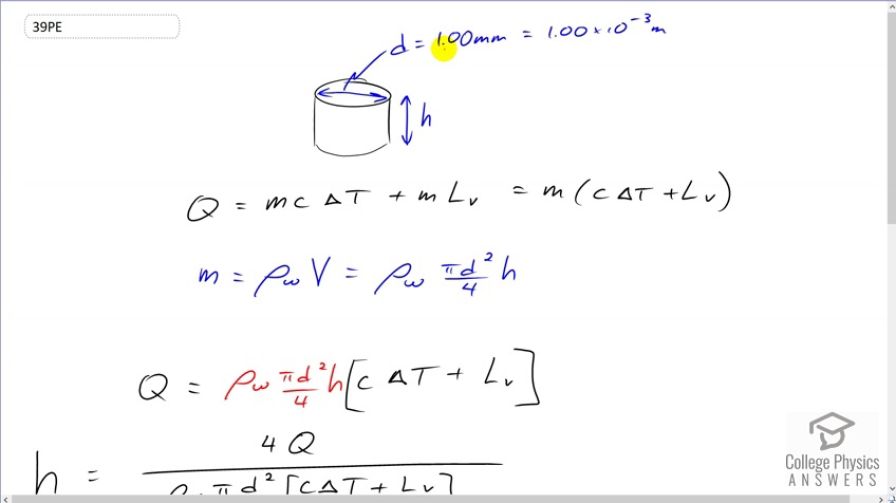 39PE
d = 1.00mm = 1.00 × 10⁻³ m
h
Q = mcΔT + mLᵥ = m(cΔT + Lᵥ)
m = ρ_w V = ρ_w πd²/4 h
Q = ρ_w πd²/4 h [cΔT + Lᵥ]
h = 4Q / ρ_w πd² [cΔT + Lᵥ]
College Physics
ANSWERS